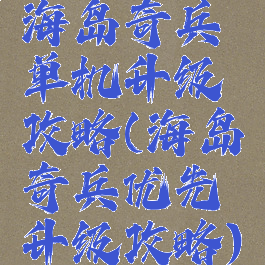 海岛奇兵
单机升级
攻略(海岛
奇兵优先
升级攻略)